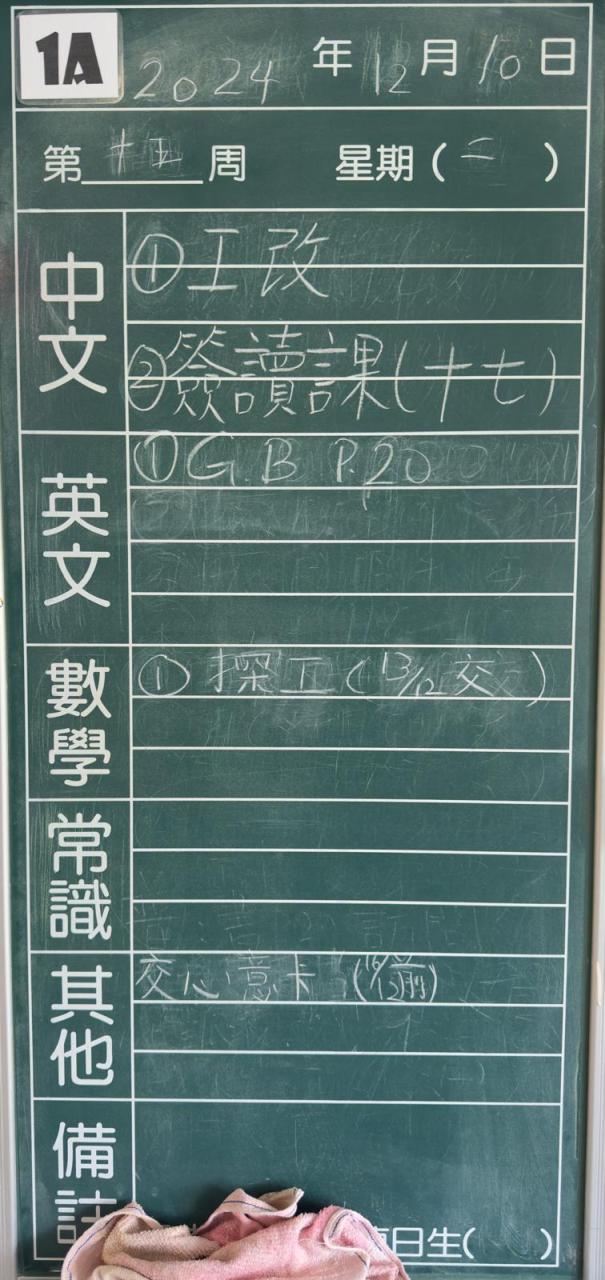 1A
2024年12月10日
第十五周 星期(二)
中文
①工改
②簽讀課(十七)
英文
①G.B P.20
數學
① 探工(13/12交)
常識
其他
交心意卡(16/12前)
備註
日生( )